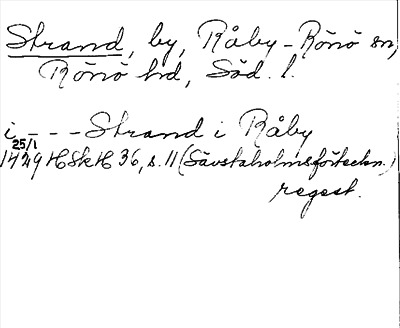 Strand, by, Råby-Rönö sn,
Rönö hd, Söd. l.
i - - - Strand i Råby
25/1
1429 HSkH 36, s. 11 (Sävstaholmsförteckn.)
regest.